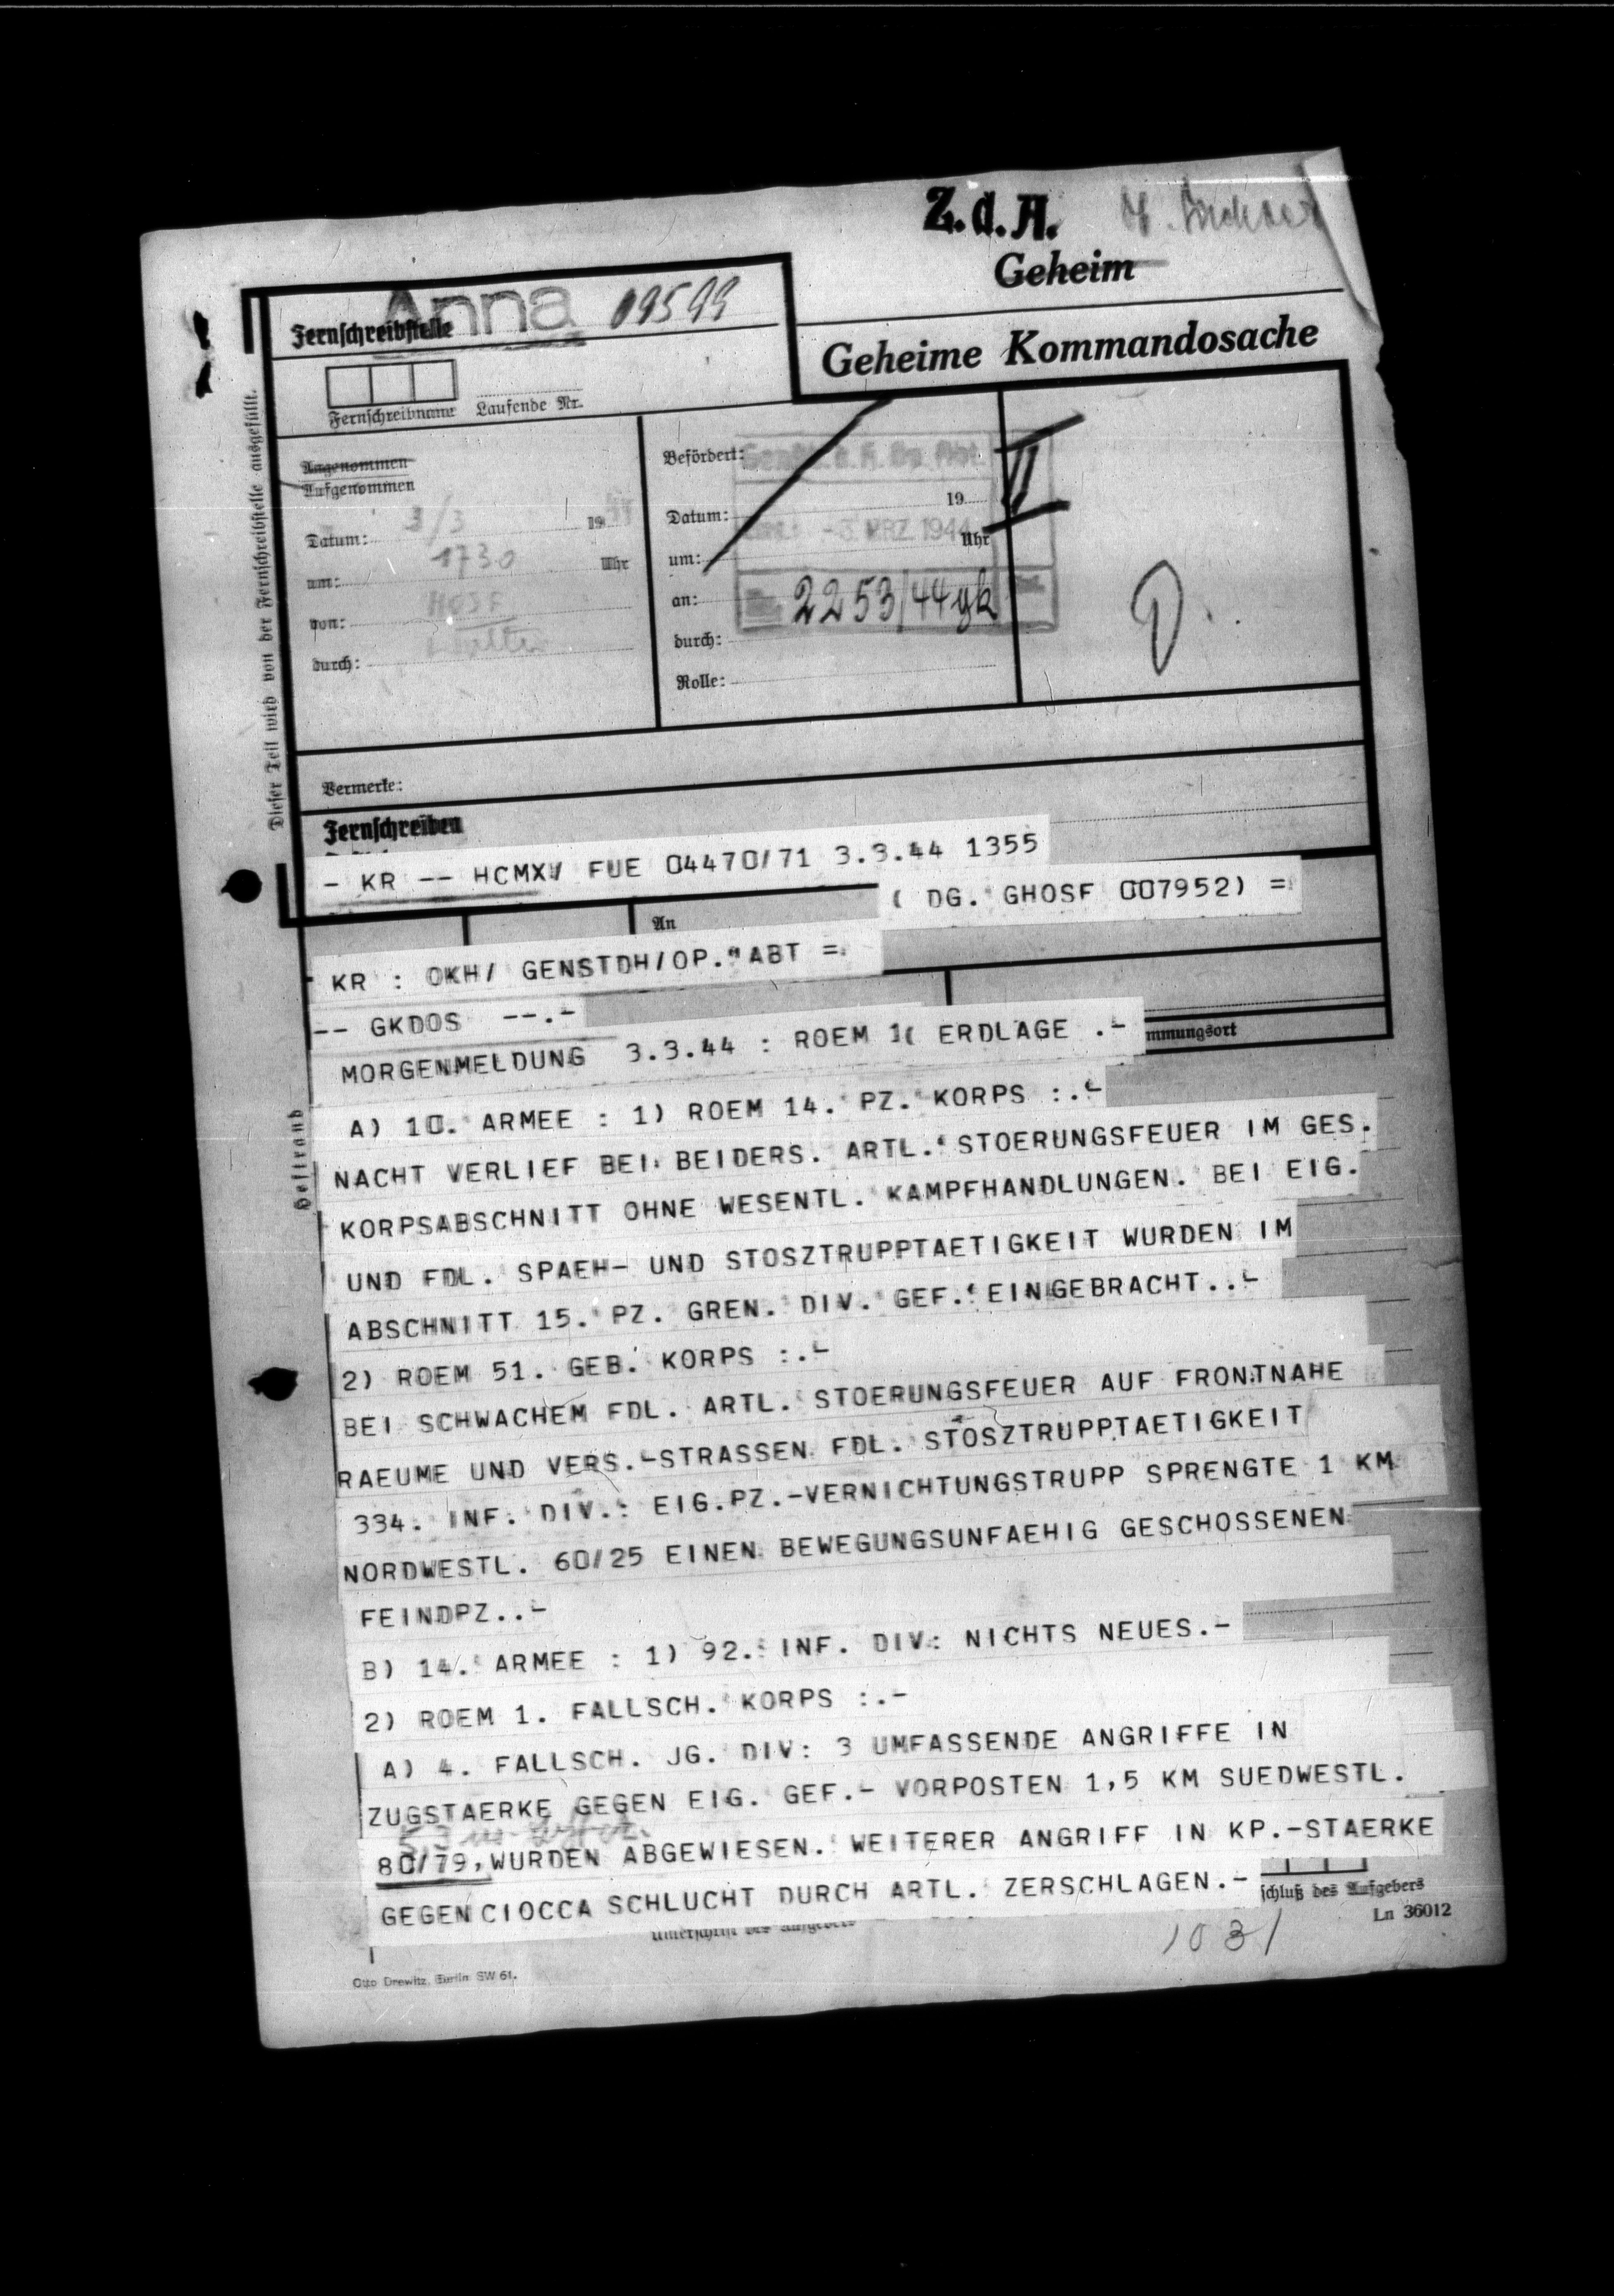 Z.d.A.
Geheim
Anna 19599
Fernschreibstelle
Geheime Kommandosache
Fernschreibname Laufende Nr.
Dieser Teil wird von der Fernschreibstelle ausgefüllt.
Angenommen
Aufgenommen
Datum: 3/3 19
um: 1730 Uhr
von: HOSF
durch:
Befördert:
Datum: 19
-3. MRZ. 1944
um: Uhr
an: 2253/44 gk
durch:
Rolle:
II
Vermerke:
Fernschreiben
- KR -- HCMXV FUE 04470/71 3.3.44 1355
( DG. GHOSF 007952) =
An
KR : OKH/ GENSTDH/OP. ABT =
-- GKDOS --.-
MORGENMELDUNG 3.3.44 : ROEM 1( ERDLAGE .-
mmungsort
Heftrand
A) 10. ARMEE : 1) ROEM 14. PZ. KORPS :.-
NACHT VERLIEF BEI BEIDERS. ARTL. STOERUNGSFEUER IM GES.
KORPSABSCHNITT OHNE WESENTL. KAMPFHANDLUNGEN. BEI EIG.
UND FDL. SPAEH- UND STOSZTRUPPTAETIGKEIT WURDEN IM
ABSCHNITT 15. PZ. GREN. DIV. GEF. EINGEBRACHT..-
2) ROEM 51. GEB. KORPS :.-
BEI SCHWACHEM FDL. ARTL. STOERUNGSFEUER AUF FRONTNAHE
RAEUME UND VERS.-STRASSEN FDL. STOSZTRUPPTAETIGKEIT
334. INF. DIV.: EIG.PZ.-VERNICHTUNGSTRUPP SPRENGTE 1 KM
NORDWESTL. 60/25 EINEN BEWEGUNGSUNFAEHIG GESCHOSSENEN
FEINDPZ..-
B) 14. ARMEE : 1) 92. INF. DIV: NICHTS NEUES.-
2) ROEM 1. FALLSCH. KORPS :.-
A) 4. FALLSCH. JG. DIV: 3 UMFASSENDE ANGRIFFE IN
ZUGSTAERKE GEGEN EIG. GEF.- VORPOSTEN 1,5 KM SUEDWESTL.
80/79, WURDEN ABGEWIESEN. WEITERER ANGRIFF IN KP.-STAERKE
GEGEN CIOCCA SCHLUCHT DURCH ARTL. ZERSCHLAGEN.-
schluß des Aufgebers
Unterschrift des Aufgebers
Ln 36012
1031
Otto Drewitz, Berlin SW 61.